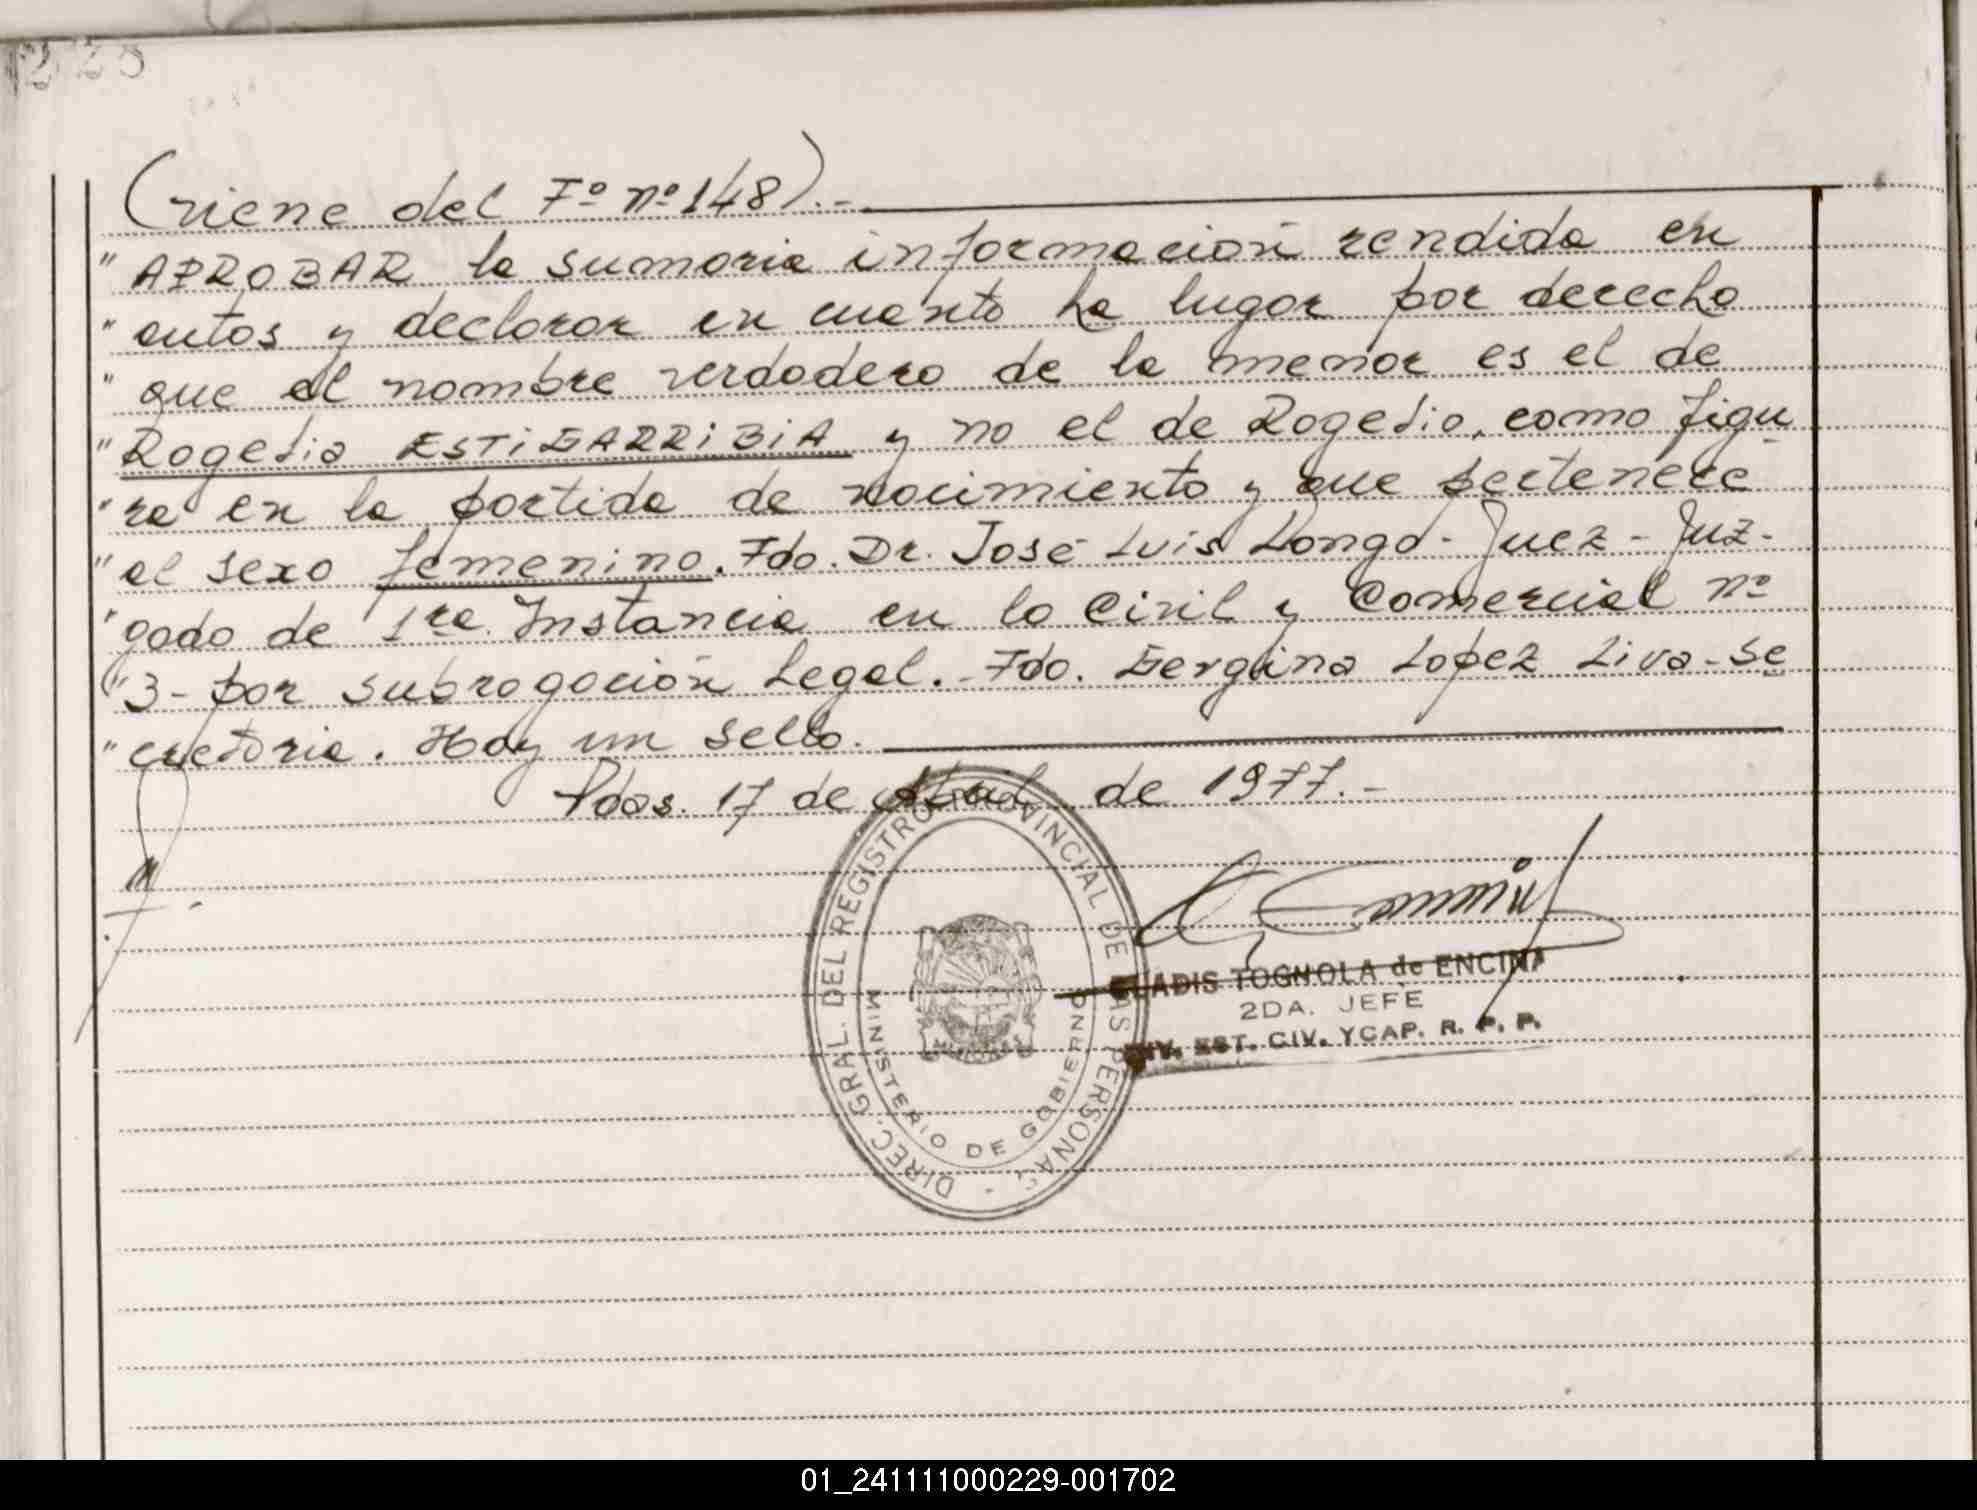 228
(viene del Fº nº 148).-
" APROBAR la sumaria información rendida en
" autos y declarar en cuanto ha lugar por derecho
" que el nombre verdadero de la menor es el de
" Rogelia ESTIGARRIBIA y no el de Rogelio, como figu
" ra en la partida de nacimiento y que pertenece
" al sexo femenino. Fdo. Dr. José Luis Longo - Juez - Juz-
" gado de 1ra. Instancia en lo Civil y Comercial nº
" 3- por subrogación Legal.- Fdo. Georgina Lopez Liva - Se
" cretaria. Hay un sello.
Pdas. 17 de Abril de 1977.-
DIREC. GRAL. DEL REGISTRO PROVINCIAL DE LAS PERSONAS -
MINISTERIO DE GOBIERNO
MISIONES
GLADIS TOGNOLA de ENCINA
2DA. JEFE
DIV. EST. CIV. YCAP. R. P. P.
01_241111000229-001702